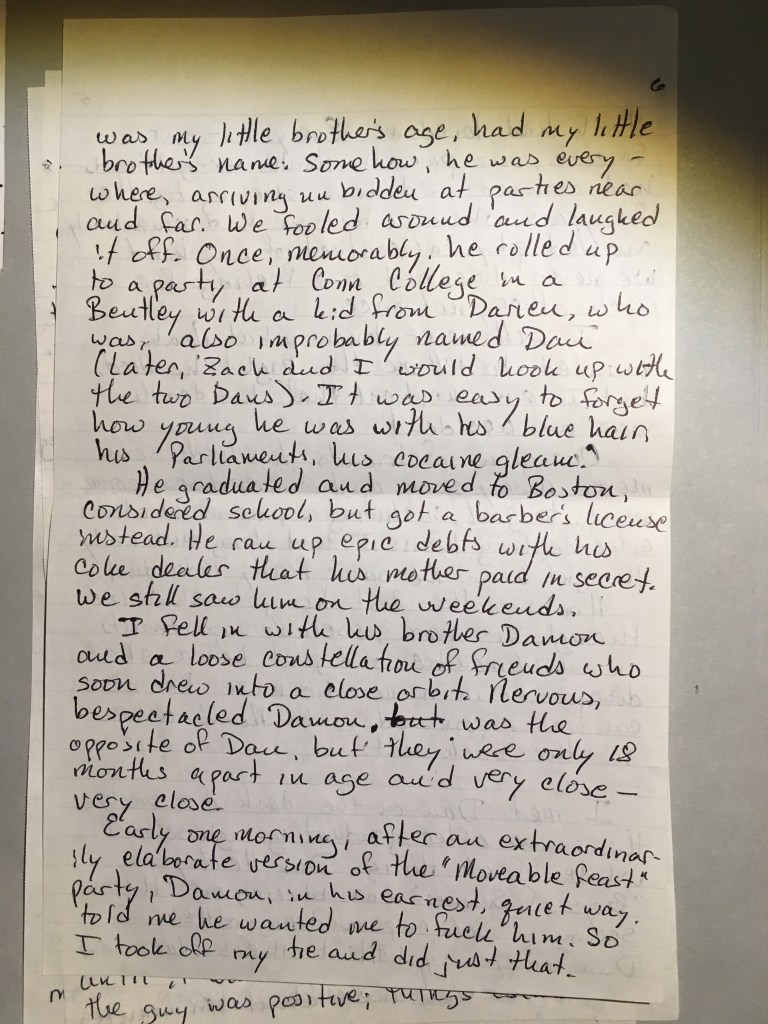 6
was my little brother's age, had my little
brother's name. Somehow, he was every-
where, arriving unbidden at parties near
and far. We fooled around and laughed
it off. Once, memorably, he rolled up
to a party at Conn College in a
Bentley with a kid from Darien, who
was, also improbably named Dan
(Later, Zach and I would hook up with
the two Dans). It was easy to forget
how young he was with his blue hair,
his Parliaments, his cocaine gleam.
He graduated and moved to Boston,
considered school, but got a barber's license
instead. He ran up epic debts with his
coke dealer that his mother paid in secret.
We still saw him on the weekends.
I fell in with his brother Damon
and a loose constellation of friends who
soon drew into a close orbit. Nervous,
bespectacled Damon, but was the
opposite of Dan, but they were only 18
months apart in age and very close —
very close.
Early one morning, after an extraordinar-
ily elaborate version of the "Moveable Feast"
party, Damon, in his earnest, quiet way,
told me he wanted me to fuck him. So
I took off my tie and did just that.
the guy was positive; things